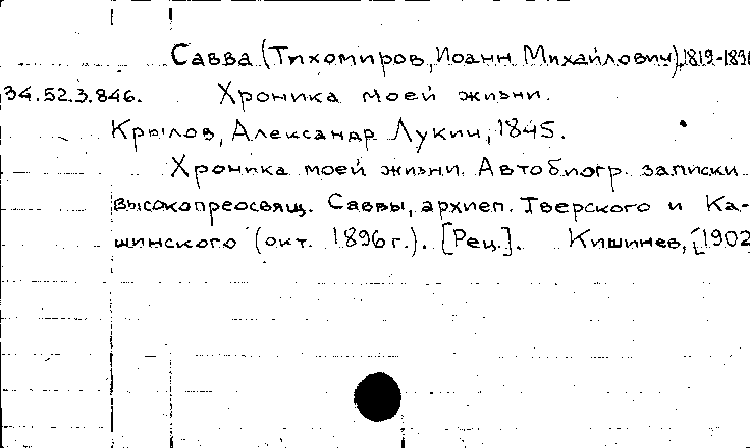 Савва (Тихомиров, Иоанн Михайлович), 1819-1896
34.52.3.846. Хроника моей жизни.
Крылов, Александр Лукич, 1845.
Хроника моей жизни. Автобиогр. записки
высокопреосвящ. Саввы, архиеп. Тверского и Ка-
шинского (окт. 1896 г.). [Рец.]. Кишинев, [1902